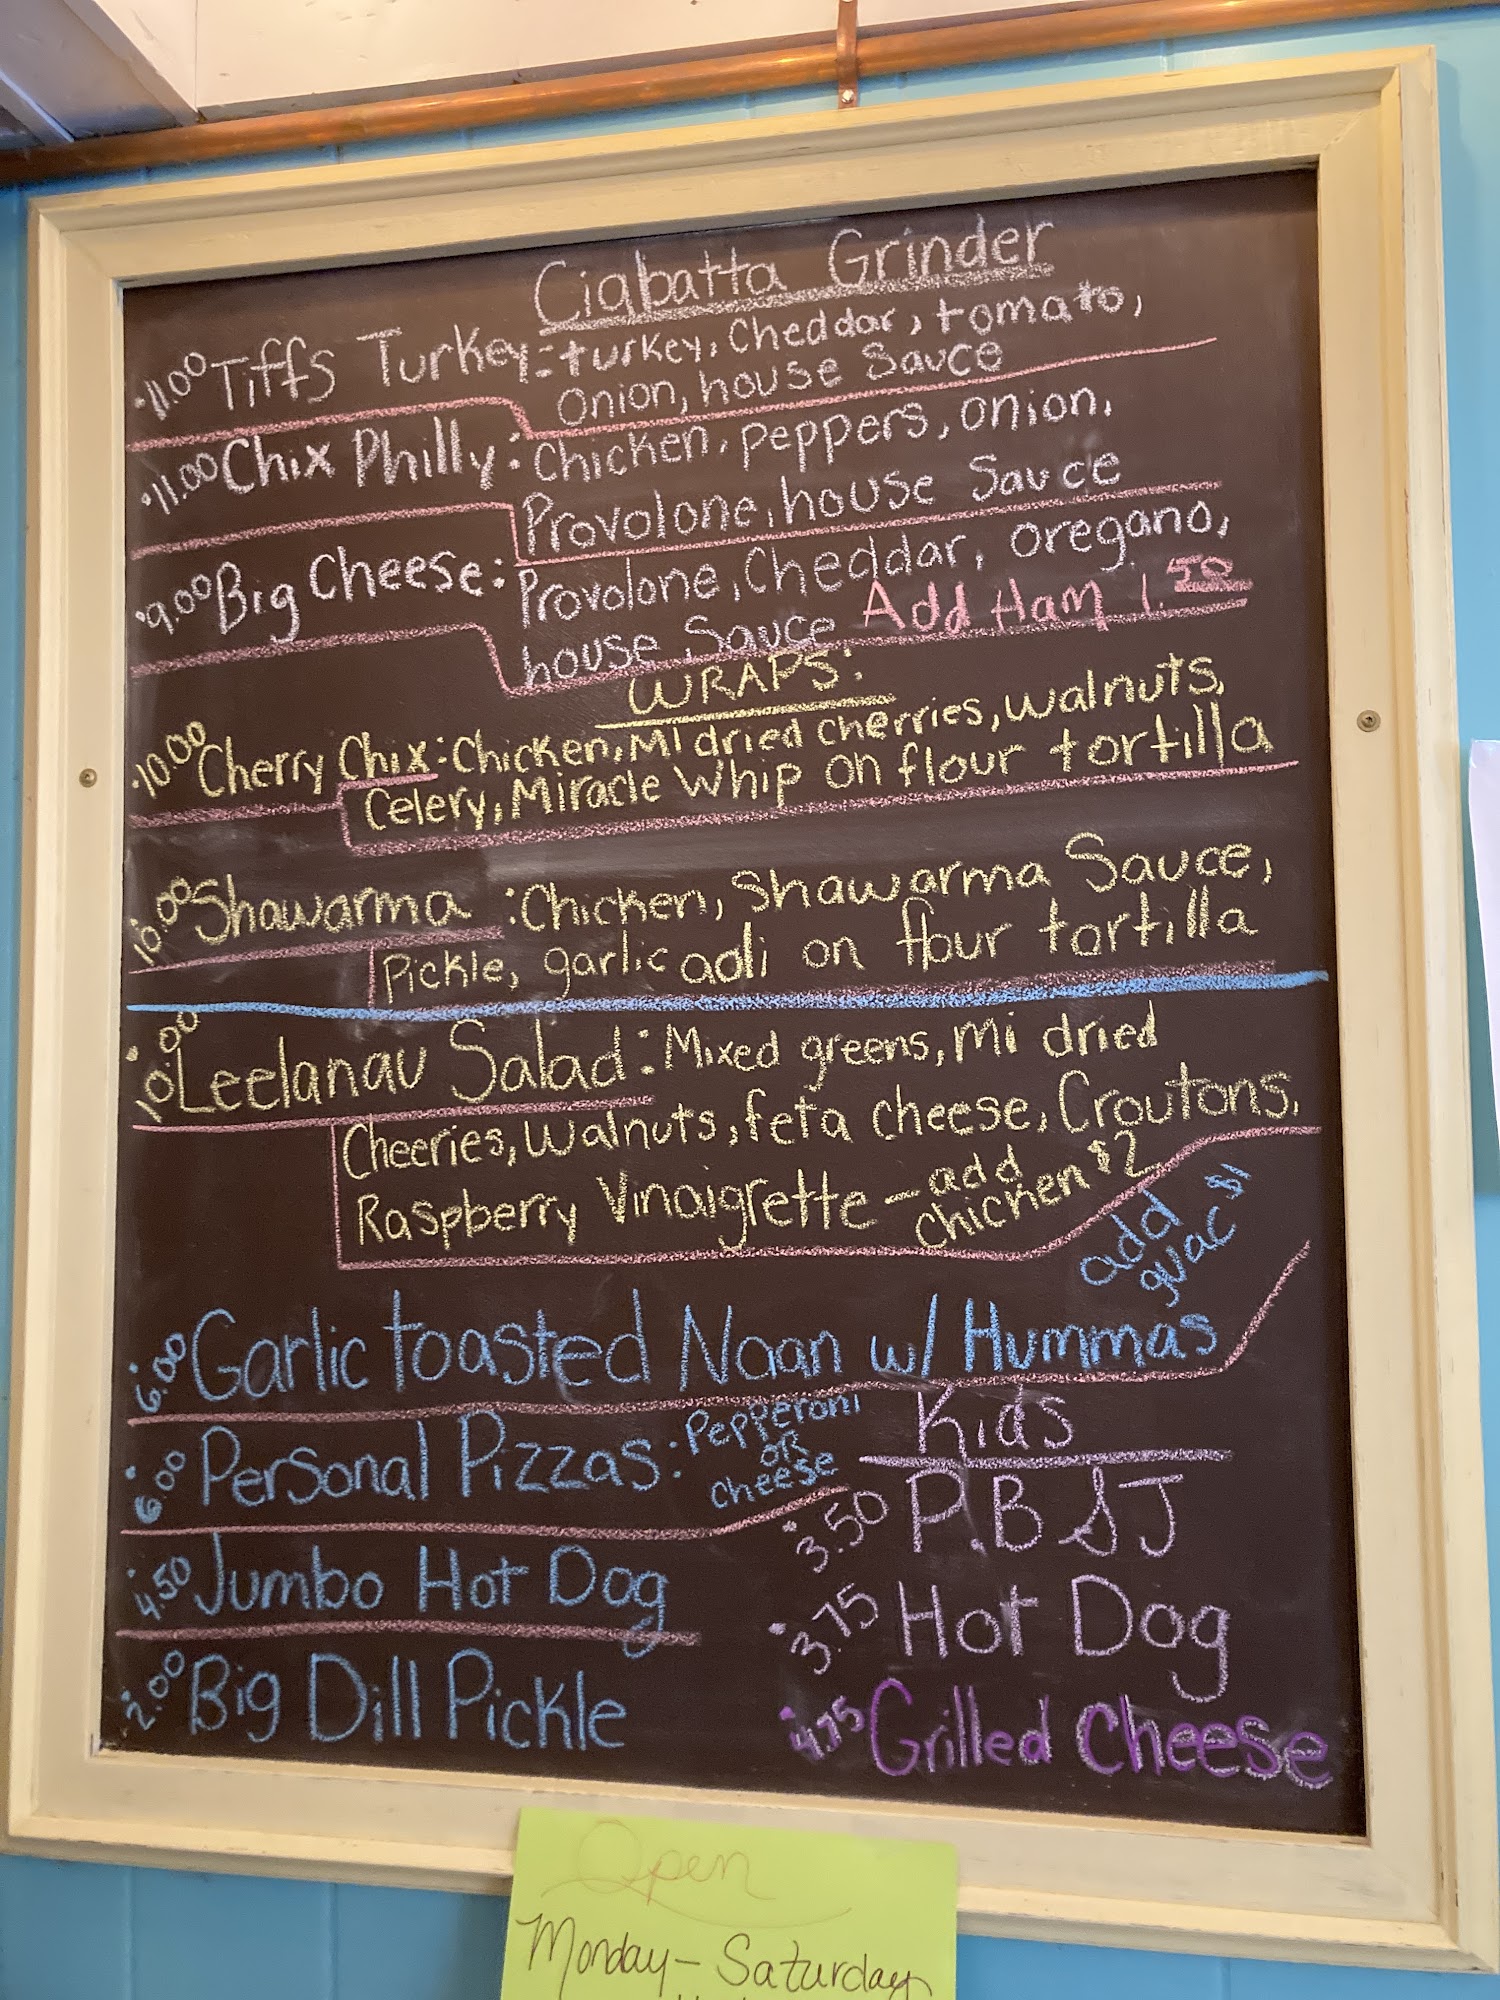 Ciabatta Grinder
11.00 Tiffs Turkey: turkey, Cheddar, tomato,
Onion, house Sauce
11.00 Chix Philly: Chicken, peppers, onion,
Provolone, house Sauce
9.00 Big Cheese: Provolone, Cheddar, oregano,
house Sauce Add Ham 1.50
WRAPS:
10.00 Cherry Chix: Chicken, MI dried cherries, walnuts,
Celery, Miracle Whip on flour tortilla
10.00 Shawarma: Chicken, Shawarma Sauce,
Pickle, garlic aoli on flour tortilla
10.00 Leelanau Salad: Mixed greens, Mi dried
Cheeries, Walnuts, feta cheese, Croutons,
Raspberry Vinaigrette - add
chicken $2
add
guac $1
6.00 Garlic toasted Naan w/ Hummas
6.00 Personal Pizzas: Pepperoni
or
cheese
4.50 Jumbo Hot Dog
2.00 Big Dill Pickle
Kids
3.50 P.B & J
3.75 Hot Dog
4.75 Grilled Cheese
Open
Monday - Saturday